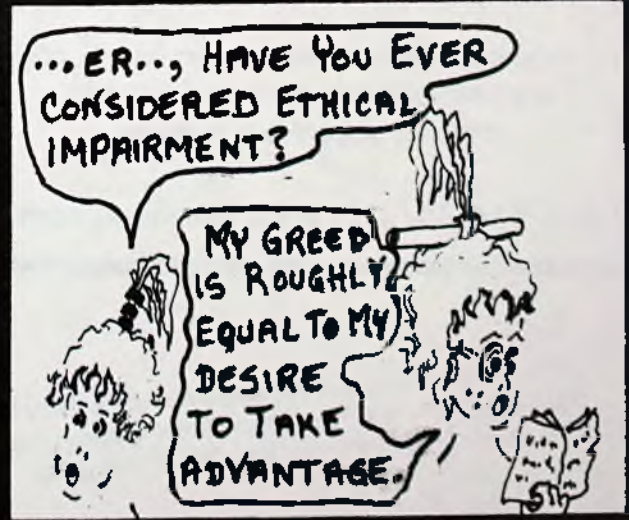 ...ER.., HAVE YOU EVER
CONSIDERED ETHICAL
IMPAIRMENT?
MY GREED
IS ROUGHLY
EQUAL TO MY
DESIRE
TO TAKE
ADVANTAGE.